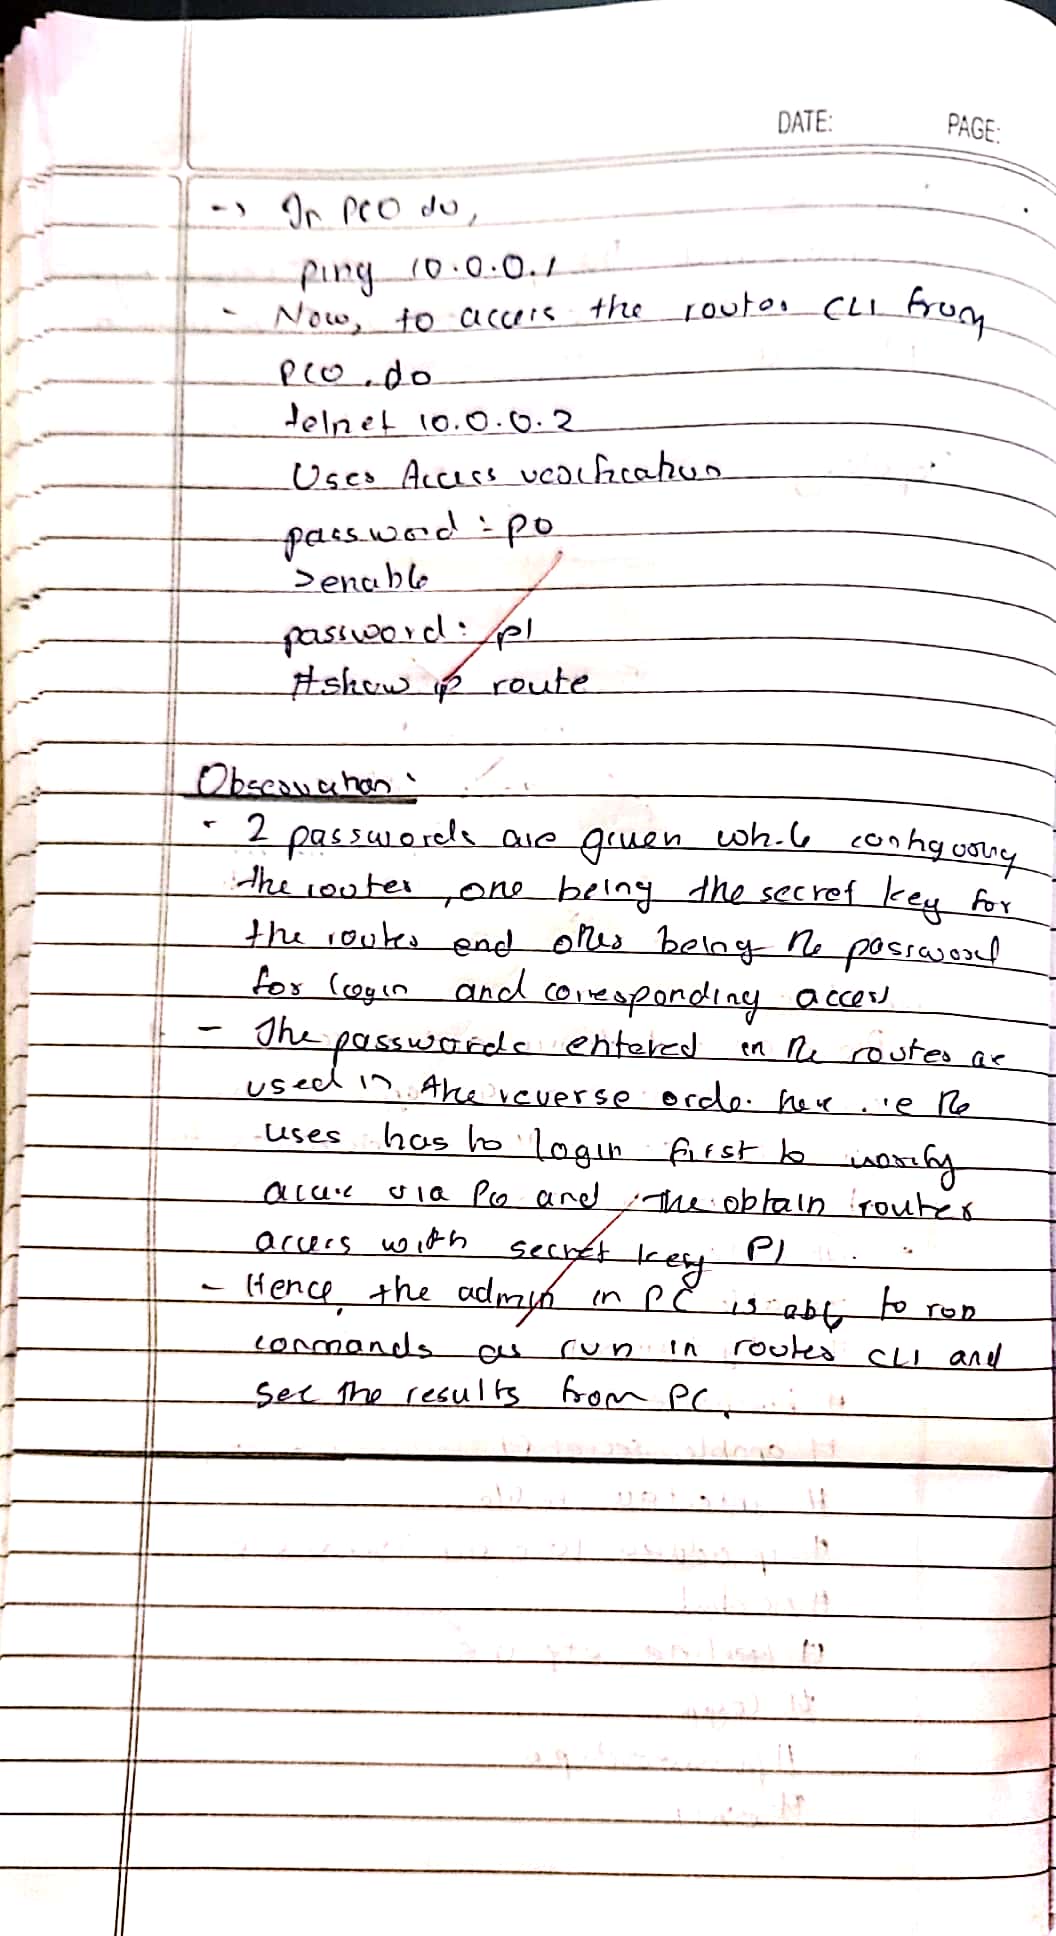 DATE: PAGE:
-> In PC0 do,
ping 10.0.0.1
- Now, to access the router CLI from
PC0, do
telnet 10.0.0.2
User Access verification
password: p0
>enable
password: p1
#show ip route
Observation:
- 2 passwords are given while configuring
the router, one being the secret key for
the router and other being the password
for login and corresponding access
- The passwords entered in the router are
used in the reverse order here i.e the
user has to login first to verify
access via P0 and the obtain router
access with secret key P1
- Hence, the admin in PC is able to run
commands as run in router CLI and
see the results from PC.